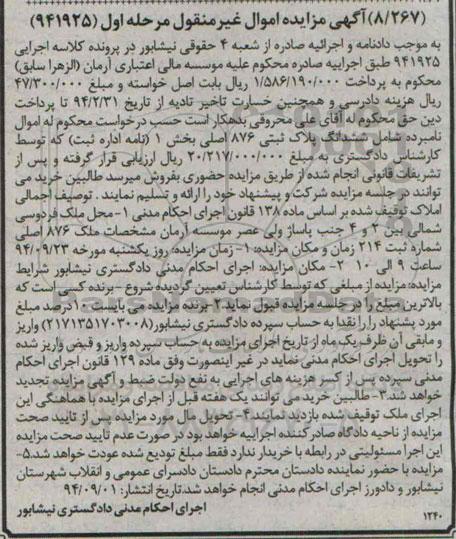 (۸/۲۶۷) آگهی مزایده اموال غیر منقول مرحله اول (۹۴۱۹۲۵)
به موجب دادنامه و اجرائیه صادره از شعبه ۴ حقوقی نیشابور در پرونده کلاسه اجرایی
۹۴۱۹۲۵ طبق اجراییه صادره محکوم علیه موسسه مالی اعتباری آرمان (الزهرا سابق)
محکوم به پرداخت ۱/۵۸۶/۱۹۰/۰۰۰ ریال بابت اصل خواسته و مبلغ ۴۷/۳۰۰/۰۰۰
ریال هزینه دادرسی و همچنین خسارت تاخیر تادیه از تاریخ ۹۴/۲/۳۱ تا پرداخت
دین حق محکوم له آقای علی محروقی بدهکار است حسب درخواست محکوم له اموال
نامبرده شامل ششدانگ پلاک ثبتی ۸۷۶ اصلی بخش ۱ (نامه اداره ثبت) که توسط
کارشناس دادگستری به مبلغ ۲۰/۲۱۷/۰۰۰/۰۰۰ ریال ارزیابی قرار گرفته و پس از
تشریفات قانونی انجام شده از طریق مزایده حضوری بفروش میرسد طالبین خرید می
توانند در جلسه مزایده شرکت و پیشنهاد خود را ارائه و تسلیم نمایند . توصیف اجمالی
املاک توقیف شده بر اساس ماده ۱۳۸ قانون اجرای احکام مدنی ۱- محل ملک فردوسی
شمالی بین ۲ و ۴ جنب پاساژ ولی عصر موسسه آرمان مشخصات ملک ۸۷۶ اصلی
شماره ثبت ۲۱۴ زمان و مکان مزایده: ۱- زمان مزایده: روز یکشنبه مورخه ۹۴/۰۹/۲۳
ساعت ۹ الی ۱۰ ۲- مکان مزایده: اجرای احکام مدنی دادگستری نیشابور شرایط
مزایده: مزایده از مبلغی که توسط کارشناس تعیین گردیده شروع -برنده کسی است که
بالاترین مبلغ را در جلسه مزایده قبول نماید ۲- برنده مزایده می بایست ۱۰ درصد مبلغ
مورد پشنهاد را نقدا به حساب سپرده دادگستری نیشابور (۲۱۷۱۳۵۱۷۰۳۰۰۸) واریز
و مابقی آن ظرف یک ماه از تاریخ اجرای مزایده به حساب سپرده واریز و قبض واریز شده
را تحویل اجرای احکام مدنی نماید در غیر اینصورت وفق ماده ۱۲۹ قانون اجرای احکام
مدنی سپرده پس از کسر هزینه های اجرایی به نفع دولت ضبط و آگهی مزایده تجدید
خواهد شد. ۳- طالبین خرید می توانند یک هفته قبل از اجرای مزایده با هماهنگی این
اجرای ملک توقیف شده بازدید نمایند. ۴- تحویل مال مورد مزایده پس از تایید صحت
مزایده از ناحیه دادگاه صادر کننده اجراییه خواهد بود در صورت عدم تایید صحت مزایده
این اجرا مسئولیتی در رابطه با خریدار ندارد فقط مبلغ تودیع شده عودت خواهد شد. ۵-
مزایده با حضور نماینده دادستان محترم دادستان دادسرای عمومی و انقلاب شهرستان
نیشابور و دادورز اجرای احکام مدنی انجام خواهد شد. تاریخ انتشار: ۹۴/۰۹/۰۱
اجرای احکام مدنی دادگستری نیشابور
۱۲۴۰